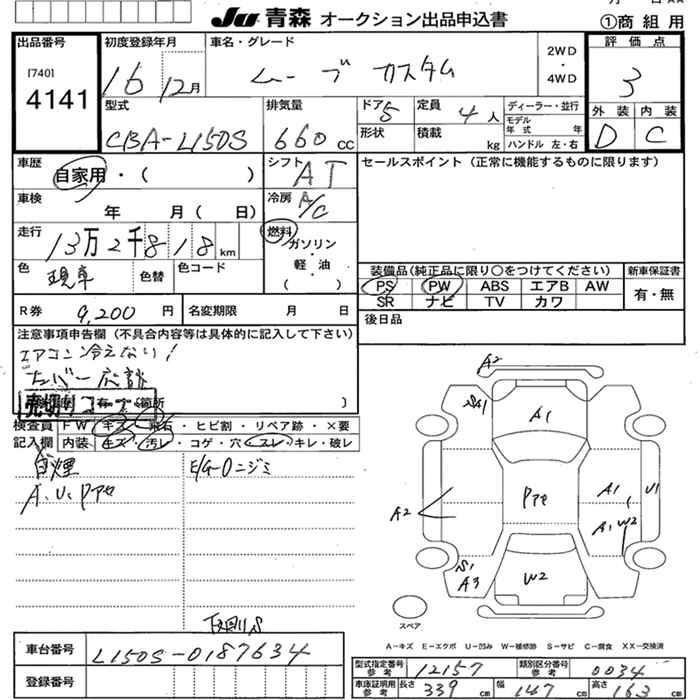 JU 青森 オークション出品申込書
①商組用
出品番号
[740]
4141
初度登録年月
16 12月
車名・グレード
ムーブ カスタム
2WD
・
4WD
評価点
3
外装 内装
D C
型式
CBA-L150S
排気量
660cc
ドア 5
形状
定員 4人
積載 kg
ディーラー・並行
モデル年式 年
ハンドル 左・右
車歴
自家用・( )
シフト AT
セールスポイント(正常に機能するものに限ります)
車検
年 月( 日)
冷房 A/C
走行
13万2千818km
燃料
ガソリン
・
軽・油
( )
色
現車
色替
色コード
装備品(純正品に限り○をつけてください)
PS PW ABS エアB AW
SR ナビ TV カワ
新車保証書
有・無
R券 9,200円
名変期限 月 日
後日品
注意事項申告欄(不具合内容等は具体的に記入して下さい)
エアコン冷えない!
ナンバー応談
売切りコーナー
有・ 箇所 )
検査員記入欄
FW キズ・飛石・ヒビ割・リペア跡・×要
内装 キズ・汚レ・コゲ・穴・スレ・キレ・破レ
E/gオニジミ
A.U.Pアセ
下回りS
A2
SA1
A1
A2
Pアセ
A1
U1
A1 W2
S1
A3
W2
スペア
A−キズ E−エクボ U−凹み W−補修跡 S−サビ C−腐食 XX−交換済
車台番号
L150S-0187634
登録番号
型式指定番号 参考 12157
類別区分番号 参考 0034
車庫証明用 参考 長さ 339cm 幅 147cm 高さ 163cm